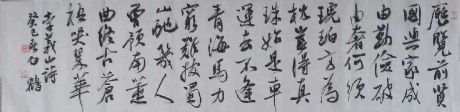 歷覽前賢
國與家成
由勤儉破
由奢何須
琥珀方為
枕豈得真
珠始是車
運去不逢
青海馬力
窮難拔蜀
山蛇幾人
曾預南薰
曲終古蒼
梧哭翠華
李義山詩
癸巳